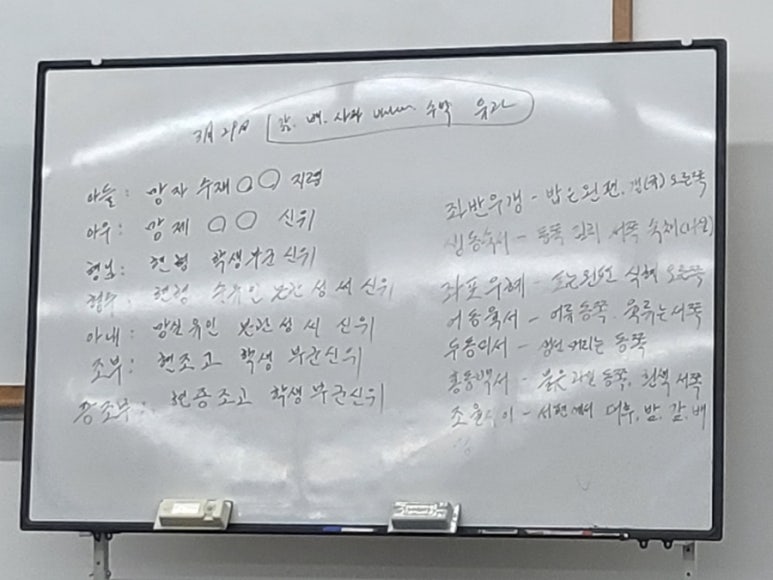 3월 29일 감. 배. 사과 수박 유과
아들 : 망자 수재 ○○ 지령
아우 : 망제 ○○ 신위
형님 : 현형 학생부군 신위
형수 : 현형 수유인 본관 성 씨 신위
아내 : 망실 유인 본관 성 씨 신위
조부 : 현조고 학생 부군신위
증조부 : 현증조고 학생부군신위
좌반우갱 - 밥은 왼편, 갱(국) 오른쪽
생동숙서 - 동쪽 김치 서쪽 숙채(나물)
좌포우혜 - 포는 왼편 식혜 오른쪽
어동육서 - 어류 동쪽. 육류는 서쪽
두동미서 - 생선 머리는 동쪽
홍동백서 - 붉은 과일 동쪽, 흰색 서쪽
조율시이 - 서편에서 대추, 밤, 감, 배